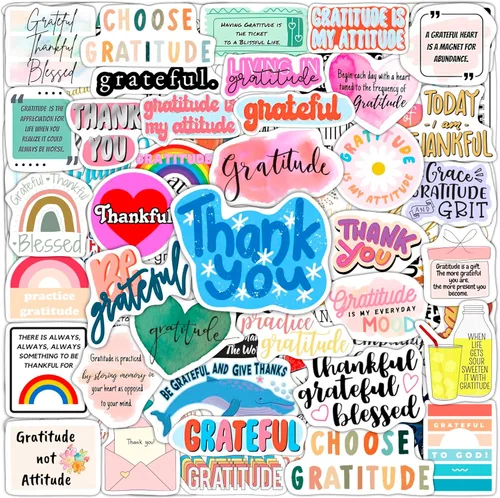 Grateful
Thankful
Blessed
CHOOSE
GRATITUDE
HAVING GRATITUDE IS
THE TICKET
TO A BLISSFUL LIFE.
GRATITUDE IS
MY ATTITUDE
A GRATEFUL HEART
IS A MAGNET FOR
ABUNDANCE.
grateful.
LIVING IN
gratitude
Begin each day with a heart
tuned to the frequency of
Gratitude
GRATITUDE IS THE
APPRECIATION FOR
LIFE WHEN YOU
REALIZE IT COULD
ALWAYS BE WORSE.
THANK
YOU
gratitude is
my attitude
grateful
TODAY
I am
THANKFUL
GRATITUDE
Gratitude
GRATITUDE
IS MY ATTITUDE
Grace
GRATITUDE
AND
GRIT
Grateful Thankful
Blessed
Thankful
Thank
you
THANK
YOU
Gratitude is a gift.
The more grateful
you are,
the more present you
become.
practice
gratitude
BE
grateful
gratitude
Gratitude
IS MY EVERYDAY
MOOD
practice
gratitude
THERE IS ALWAYS,
ALWAYS, ALWAYS
SOMETHING TO BE
THANKFUL FOR
Gratitude is practiced
by storing memory in
your heart as opposed
to your mind.
BE GRATEFUL AND GIVE THANKS
thankful
grateful
blessed
WHEN
LIFE
GETS
SOUR
SWEETEN
IT WITH
GRATITUDE
Gratitude
not
Attitude
Thank you
GRATEFUL
GRATITUDE
CHOOSE
GRATITUDE
GRATEFUL
TO GOD!